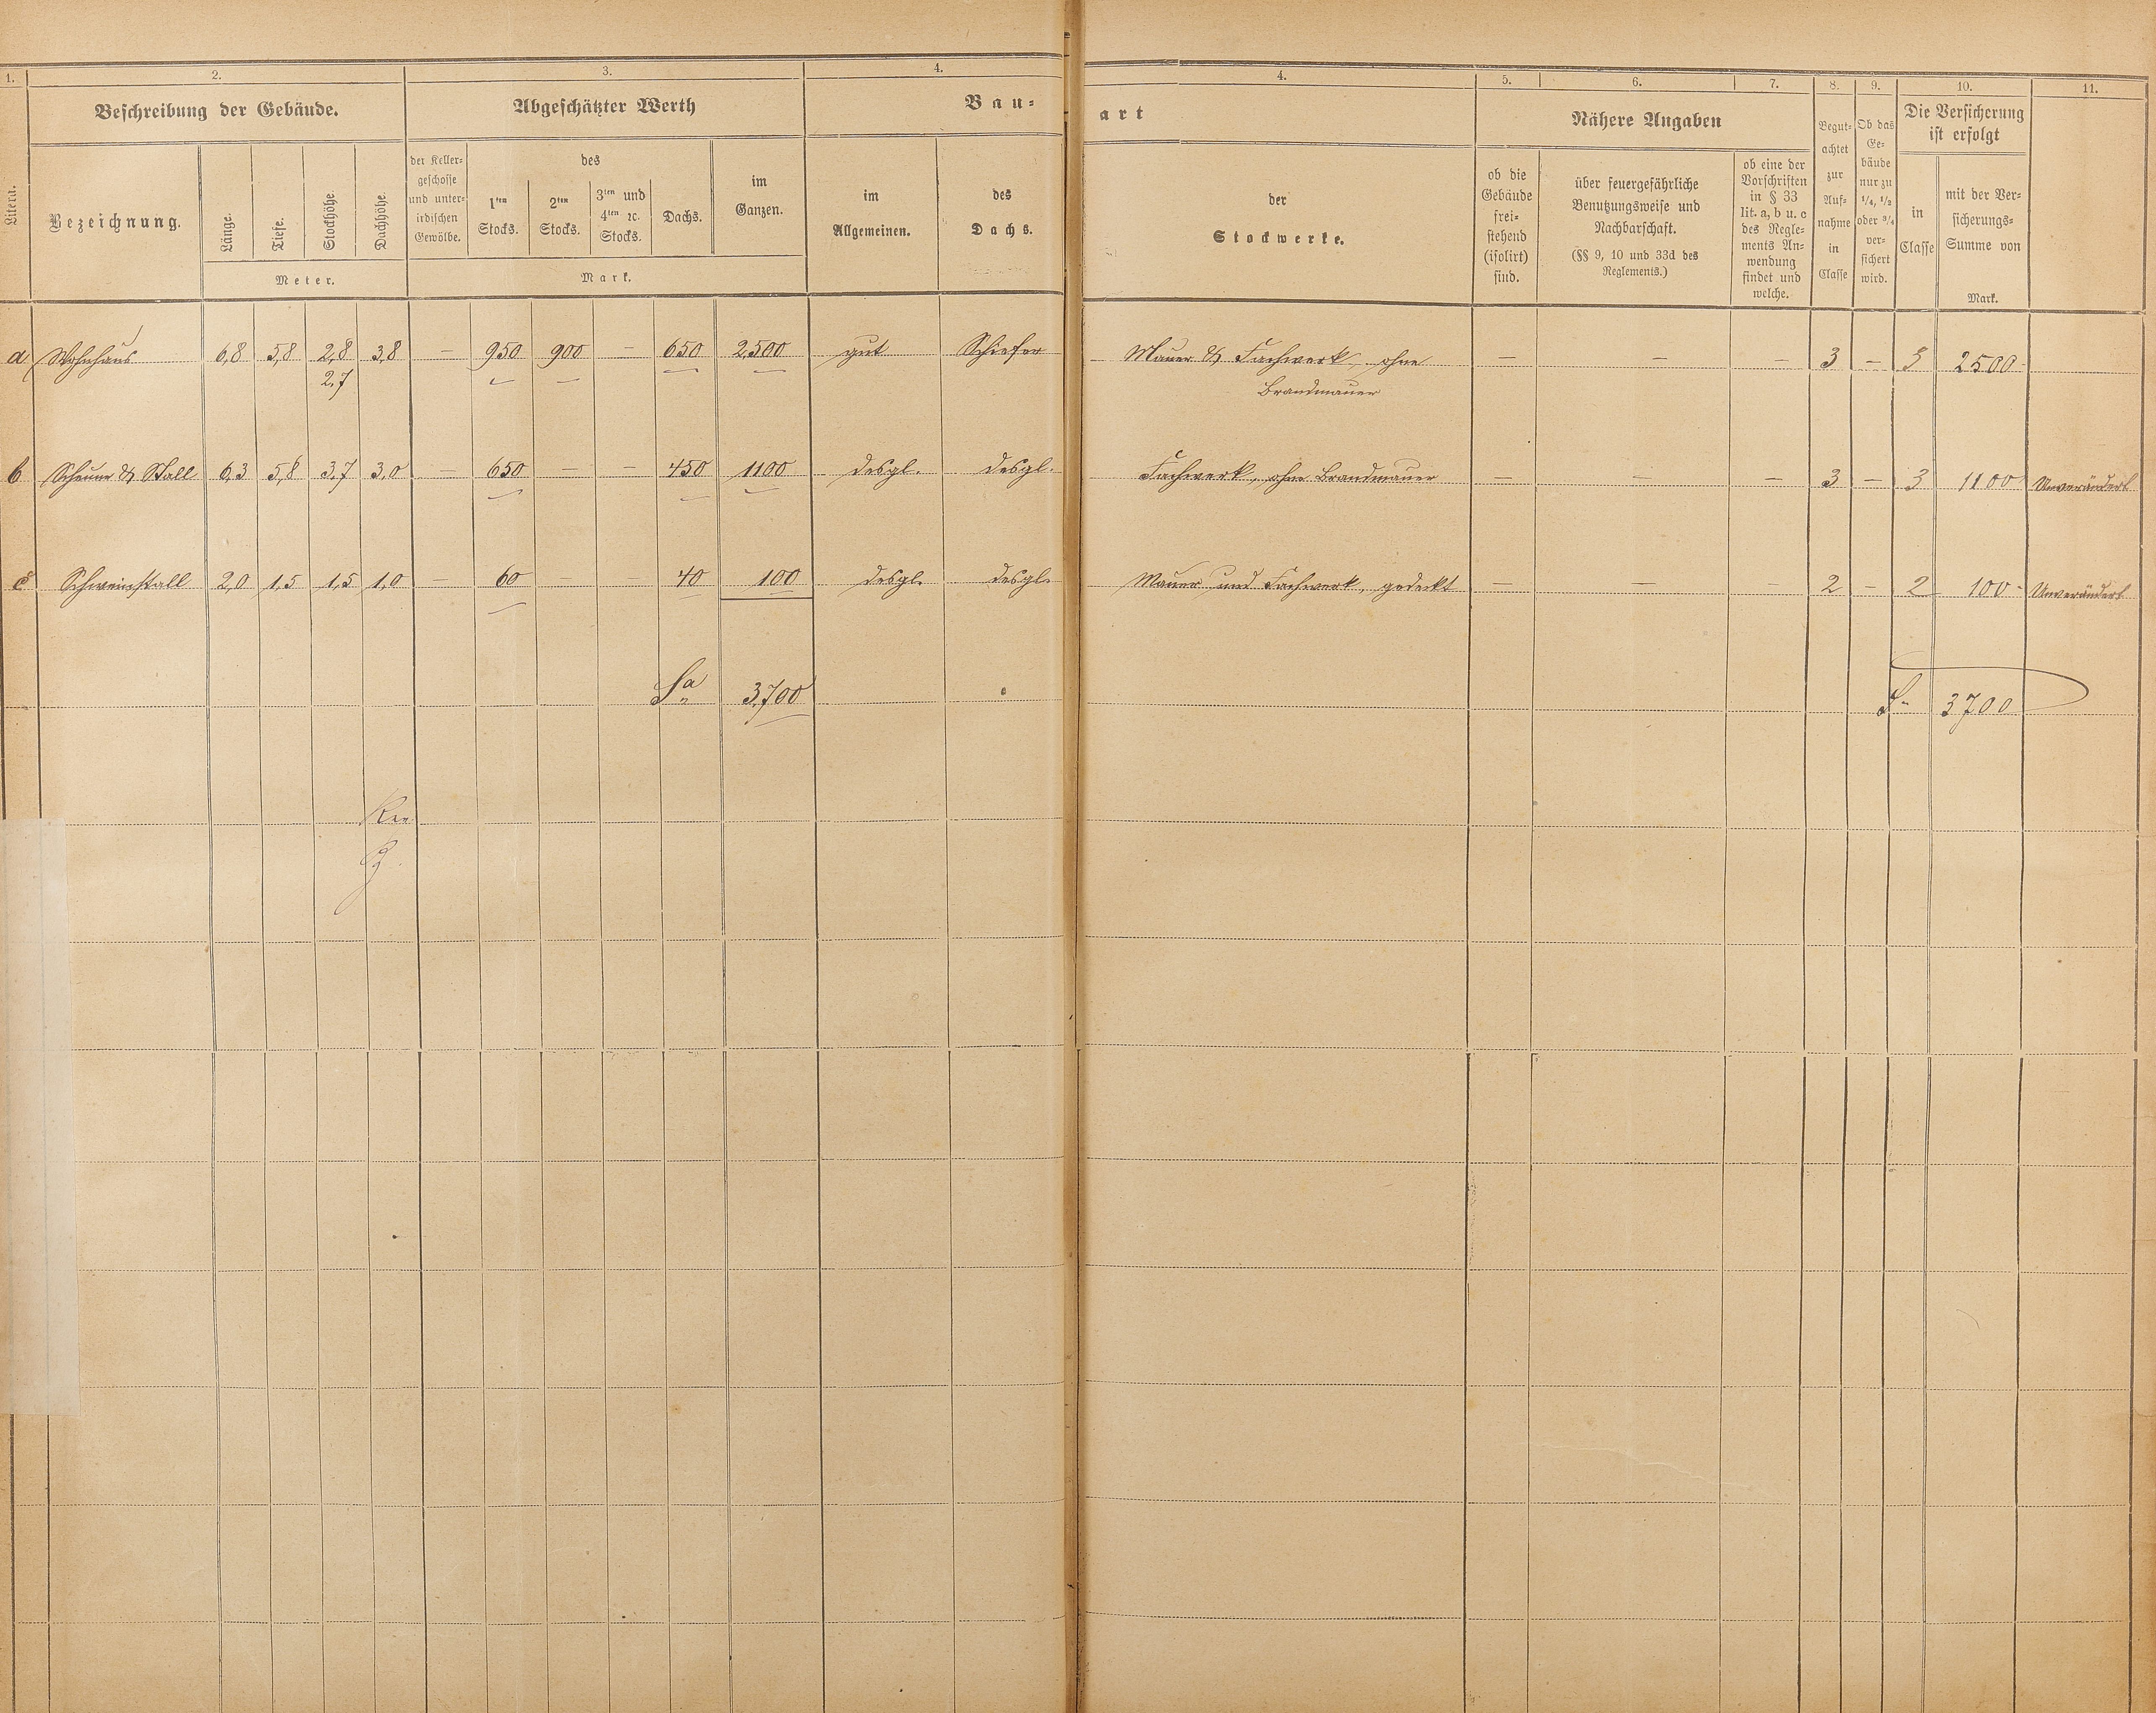 1. 2. 3. 4. 4. 5. 6. 7. 8. 9. 10. 11.
Litera.
Beschreibung der Gebäude.
Bezeichnung.
Länge.
Tiefe.
Stockhöhe.
Dachhöhe.
Meter.
Abgeschätzter Werth
der Keller-
geschosse
und unter-
irdischen
Gewölbe.
des
1ten
Stocks.
2ten
Stocks.
3ten und
4ten ꝛc.
Stocks.
Dachs.
im
Ganzen.
Mark.
Bau-
art
im
Allgemeinen.
des
Dachs.
der
Stockwerke.
Nähere Angaben
ob die
Gebäude
frei-
stehend
(isolirt)
sind.
über feuergefährliche
Benutzungsweise und
Nachbarschaft.
(§§ 9, 10 und 33d des
Reglements.)
ob eine der
Vorschriften
in § 33
lit. a, b u. c
des Regle-
ments An-
wendung
findet und
welche.
Begut-
achtet
zur
Auf-
nahme
in
Classe
Ob das
Ge-
bäude
nur zu
1/4, 1/2
oder 3/4
ver-
sichert
wird.
Die Versicherung
ist erfolgt
in
Classe
mit der Ver-
sicherungs-
Summe von
Mark.
a Wohnhaus 6,8 5,8 2,8 3,8 — 950 900 — 650 2500 gut Schiefer Mauer & Fachwerk, ohne — — — 3 — 3 2500
2,7 Brandmauer
b Scheune & Stall 6,3 5,8 3,7 3,0 — 650 — — 450 1100 desgl. desgl. Fachwerk, ohne Brandmauer — — — 3 — 3 1100 Unverändert
c Schweinstall 2,0 1,5 1,5 1,0 — 60 — — 40 100 desgl. desgl. Mauer und Fachwerk, gedeckt — — — 2 — 2 100 Unverändert
Sa 3700 S 3700